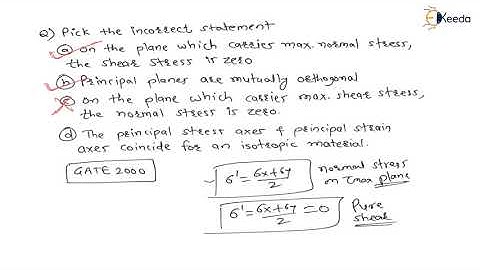 Ekeeda
Q) Pick the incorrect statement
(a) on the plane which carries max. normal stress,
the shear stress is zero
(b) Principal planes are mutually orthogonal
(c) on the plane which carries max. shear stress,
the normal stress is zero.
(d) The principal stress axes & principal strain
axes coincide for an isotropic material.
GATE 2000
σ' = σx+σy/2 normal stress on τmax plane
σ' = σx+σy/2 = 0 Pure shear